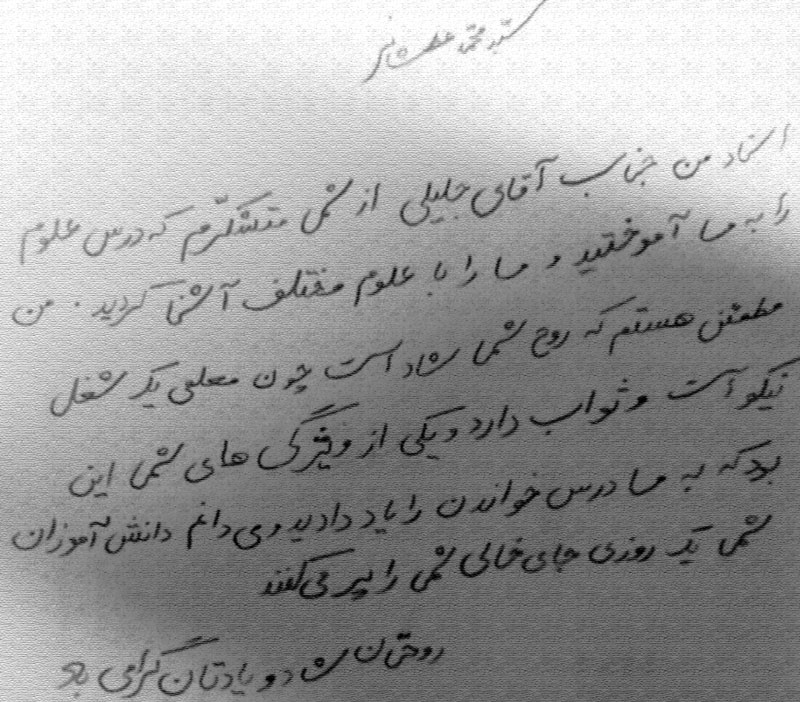 سید محمد
استاد من جناب آقای جلیلی از شما متشکرم که درس علوم
را به ما آموختید و ما را با علوم مختلف آشنا کردید. من
مطمئن هستم که روح شما شاد است چون معلمی یک شغل
نیکو است و ثواب دارد و یکی از ویژگی های شما این
بود که به ما درس خواندن را یاد دادید و می دانم دانش آموزان
شما یک روزی جای خالی شما را پر می کنند
روحتان شاد و یادتان گرامی باد